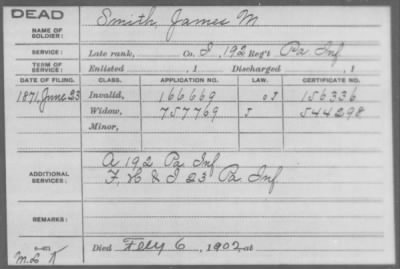 DEAD
NAME OF SOLDIER: Smith, James M
SERVICE: Late rank, Co. I, 192 Reg't Pa Inf
TERM OF SERVICE: Enlisted , 1 Discharged , 1
DATE OF FILING. CLASS. APPLICATION NO. LAW. CERTIFICATE NO.
1871, June 23 Invalid, 166669 156336
Widow, 757769 544298
Minor,
ADDITIONAL SERVICES: A 192 Pa Inf
F, H & I 23 Pa Inf
REMARKS:
Died Feby 6, 1902, at